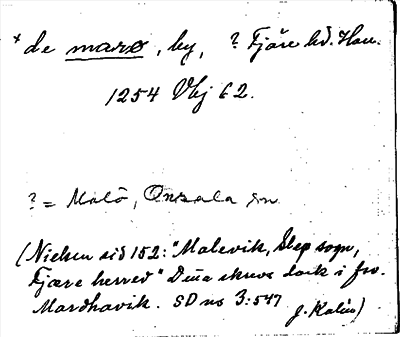 * de marø, by, ? Fjäre hd. Hall.
1254 Vhj 62.
? = Malö, Onsala sn
(Nielsen sid 152: "Malevik, Slep sogn,
Fjære herred" Dena skrevs dock i fro.
Mardhavik. SD ns 3:547
J. Kalén)